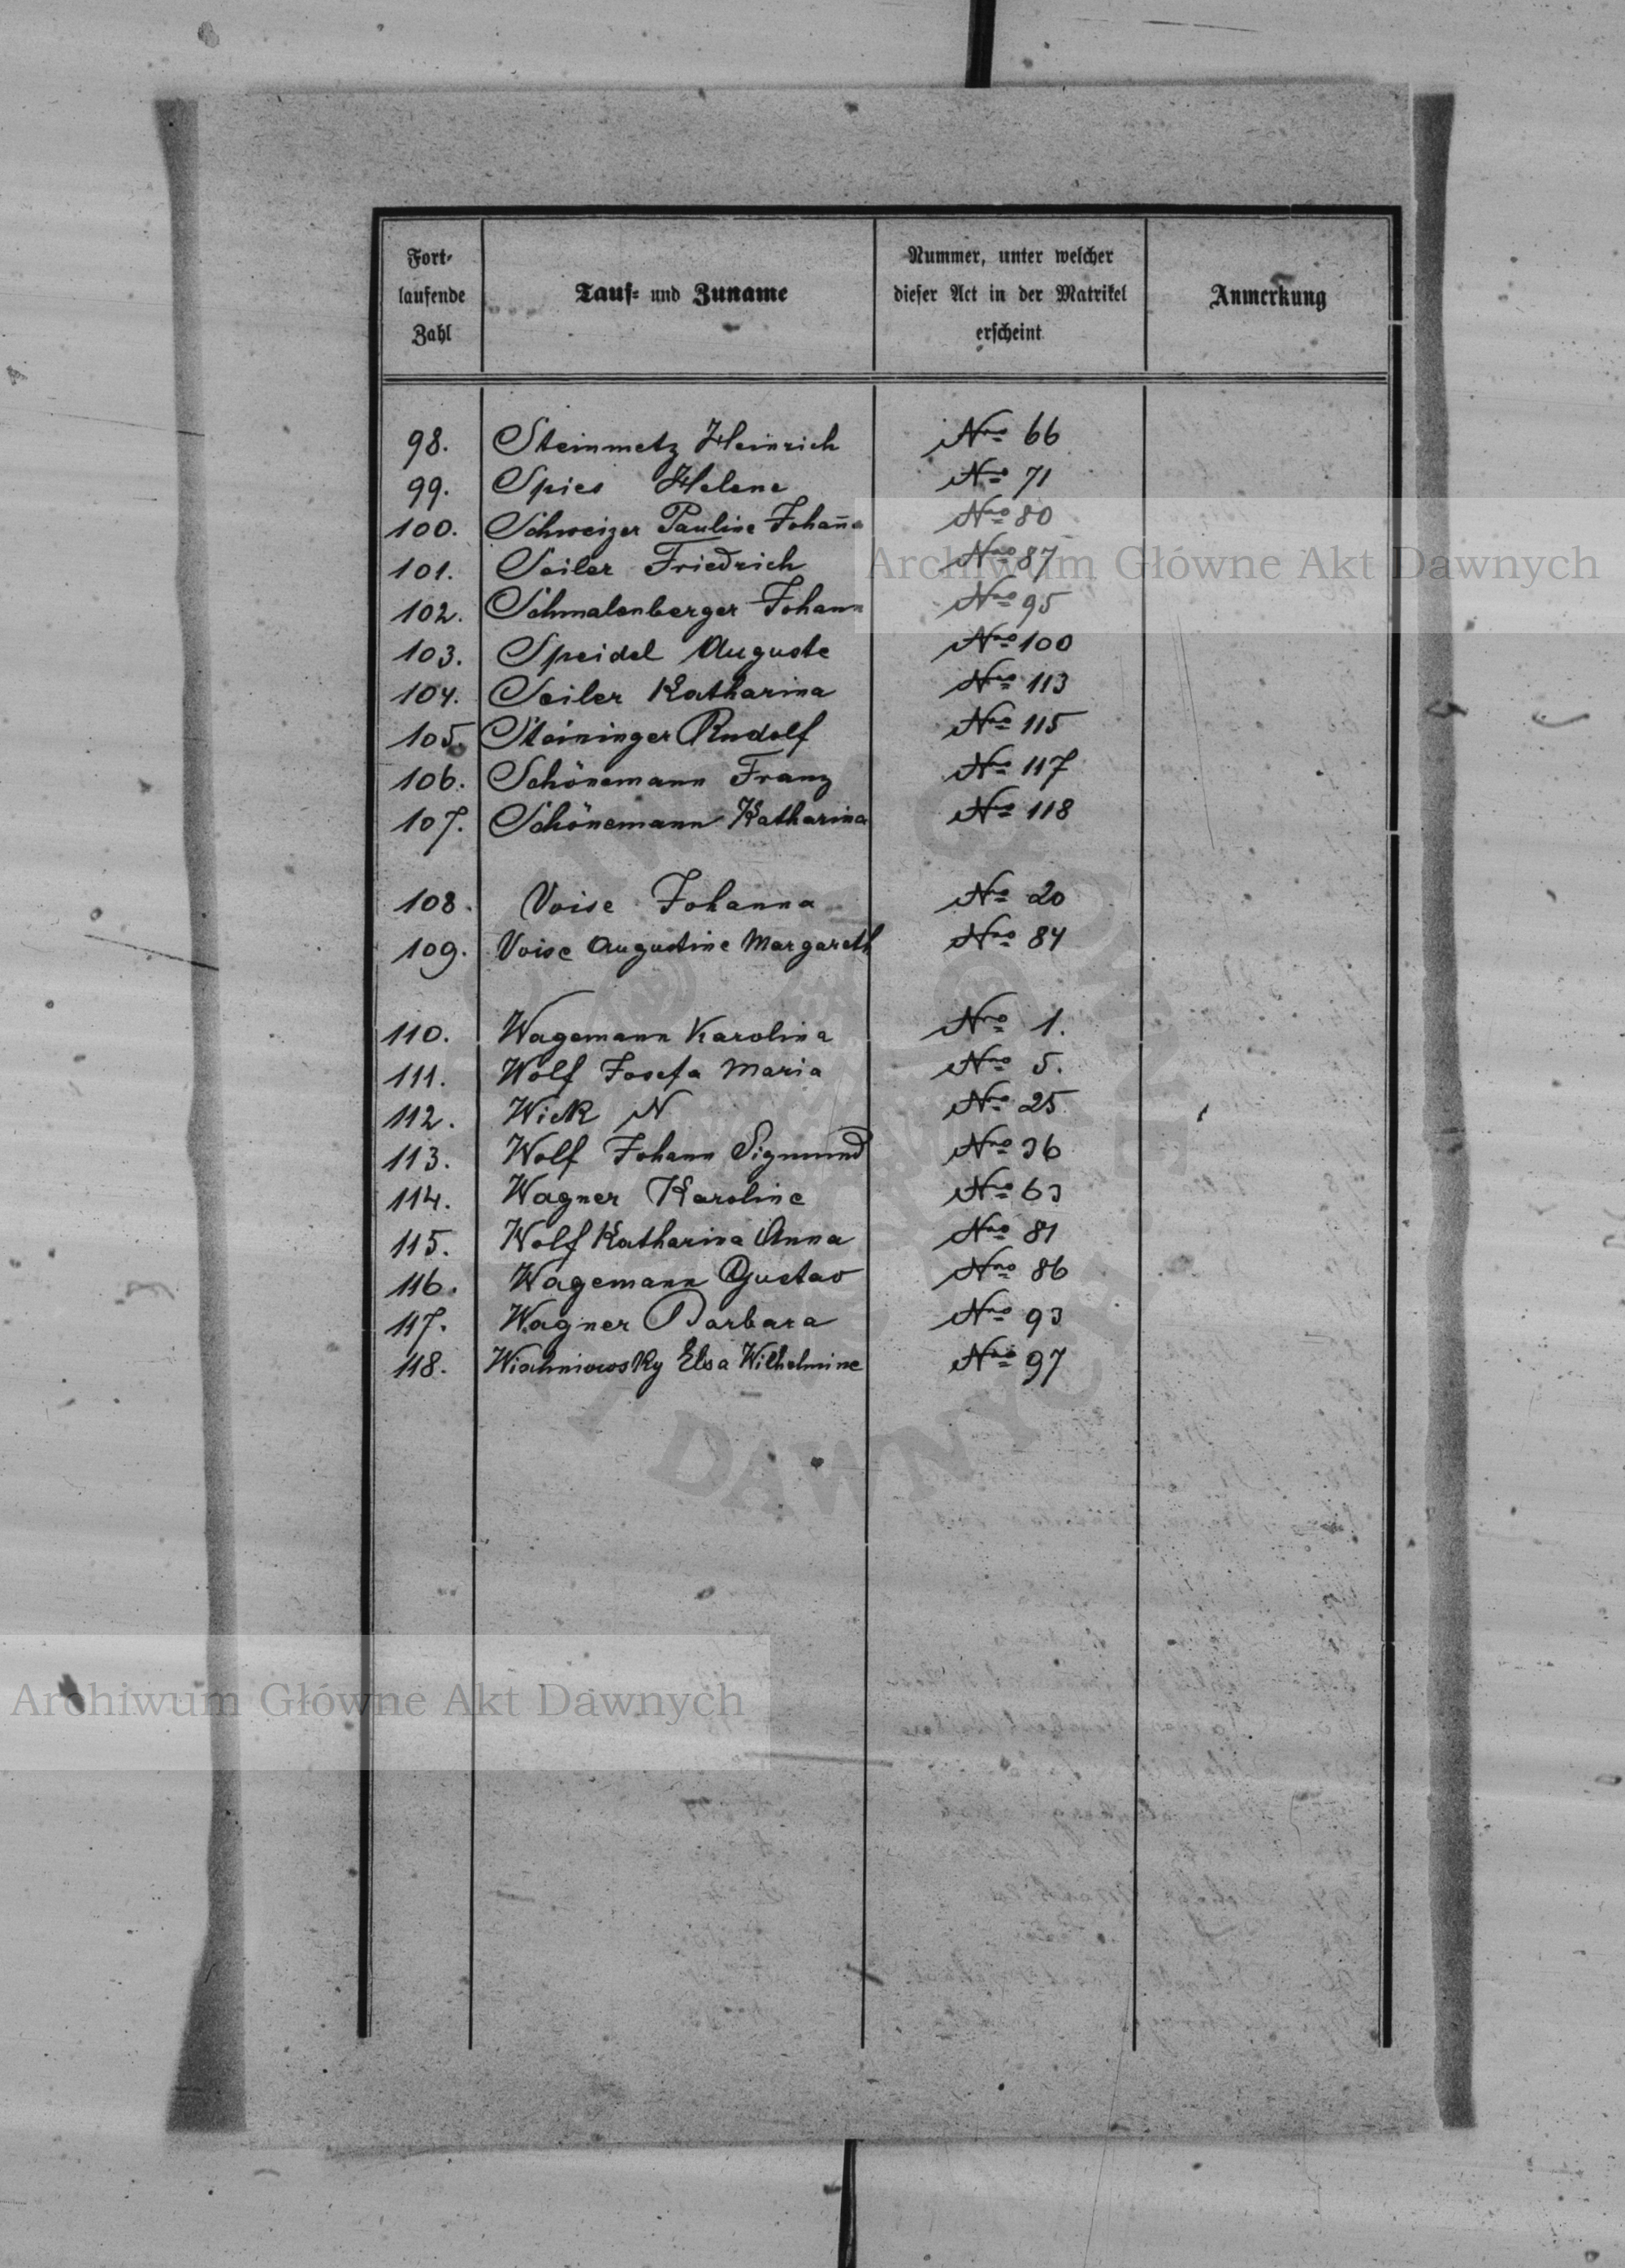 Fort- laufende Zahl | Tauf- und Zuname | Nummer, unter welcher dieser Act in der Matrikel erscheint | Anmerkung
98. Steinmetz Heinrich Nro 66
99. Spies Helene Nro 71
100. Schweizer Pauline Johan̅a Nro 80
101. Seiler Friedrich Nro 87
102. Schmalenberger Johann Nro 95
103. Speidel Auguste Nro 100
104. Seiler Katharina Nro 113
105. Steininger Rudolf Nro 115
106. Schönemann Franz Nro 117
107. Schönemann Katharina Nro 118
108. Voise Johanna Nro 20
109. Voise Augustine Margareth Nro 84
110. Wagemann Karolina Nro 1.
111. Wolf Josefa Maria Nro 5.
112. Wick N Nro 25
113. Wolf Johann Sigmund Nro 36
114. Wagner Karoline Nro 63
115. Wolf Katharina Anna Nro 81
116. Wagemann Gustav Nro 86
117. Wagner Barbara Nro 93
118. Wischniowsky Elsa Wilhelmine Nro 97
Archiwum Główne Akt Dawnych
Archiwum Główne Akt Dawnych